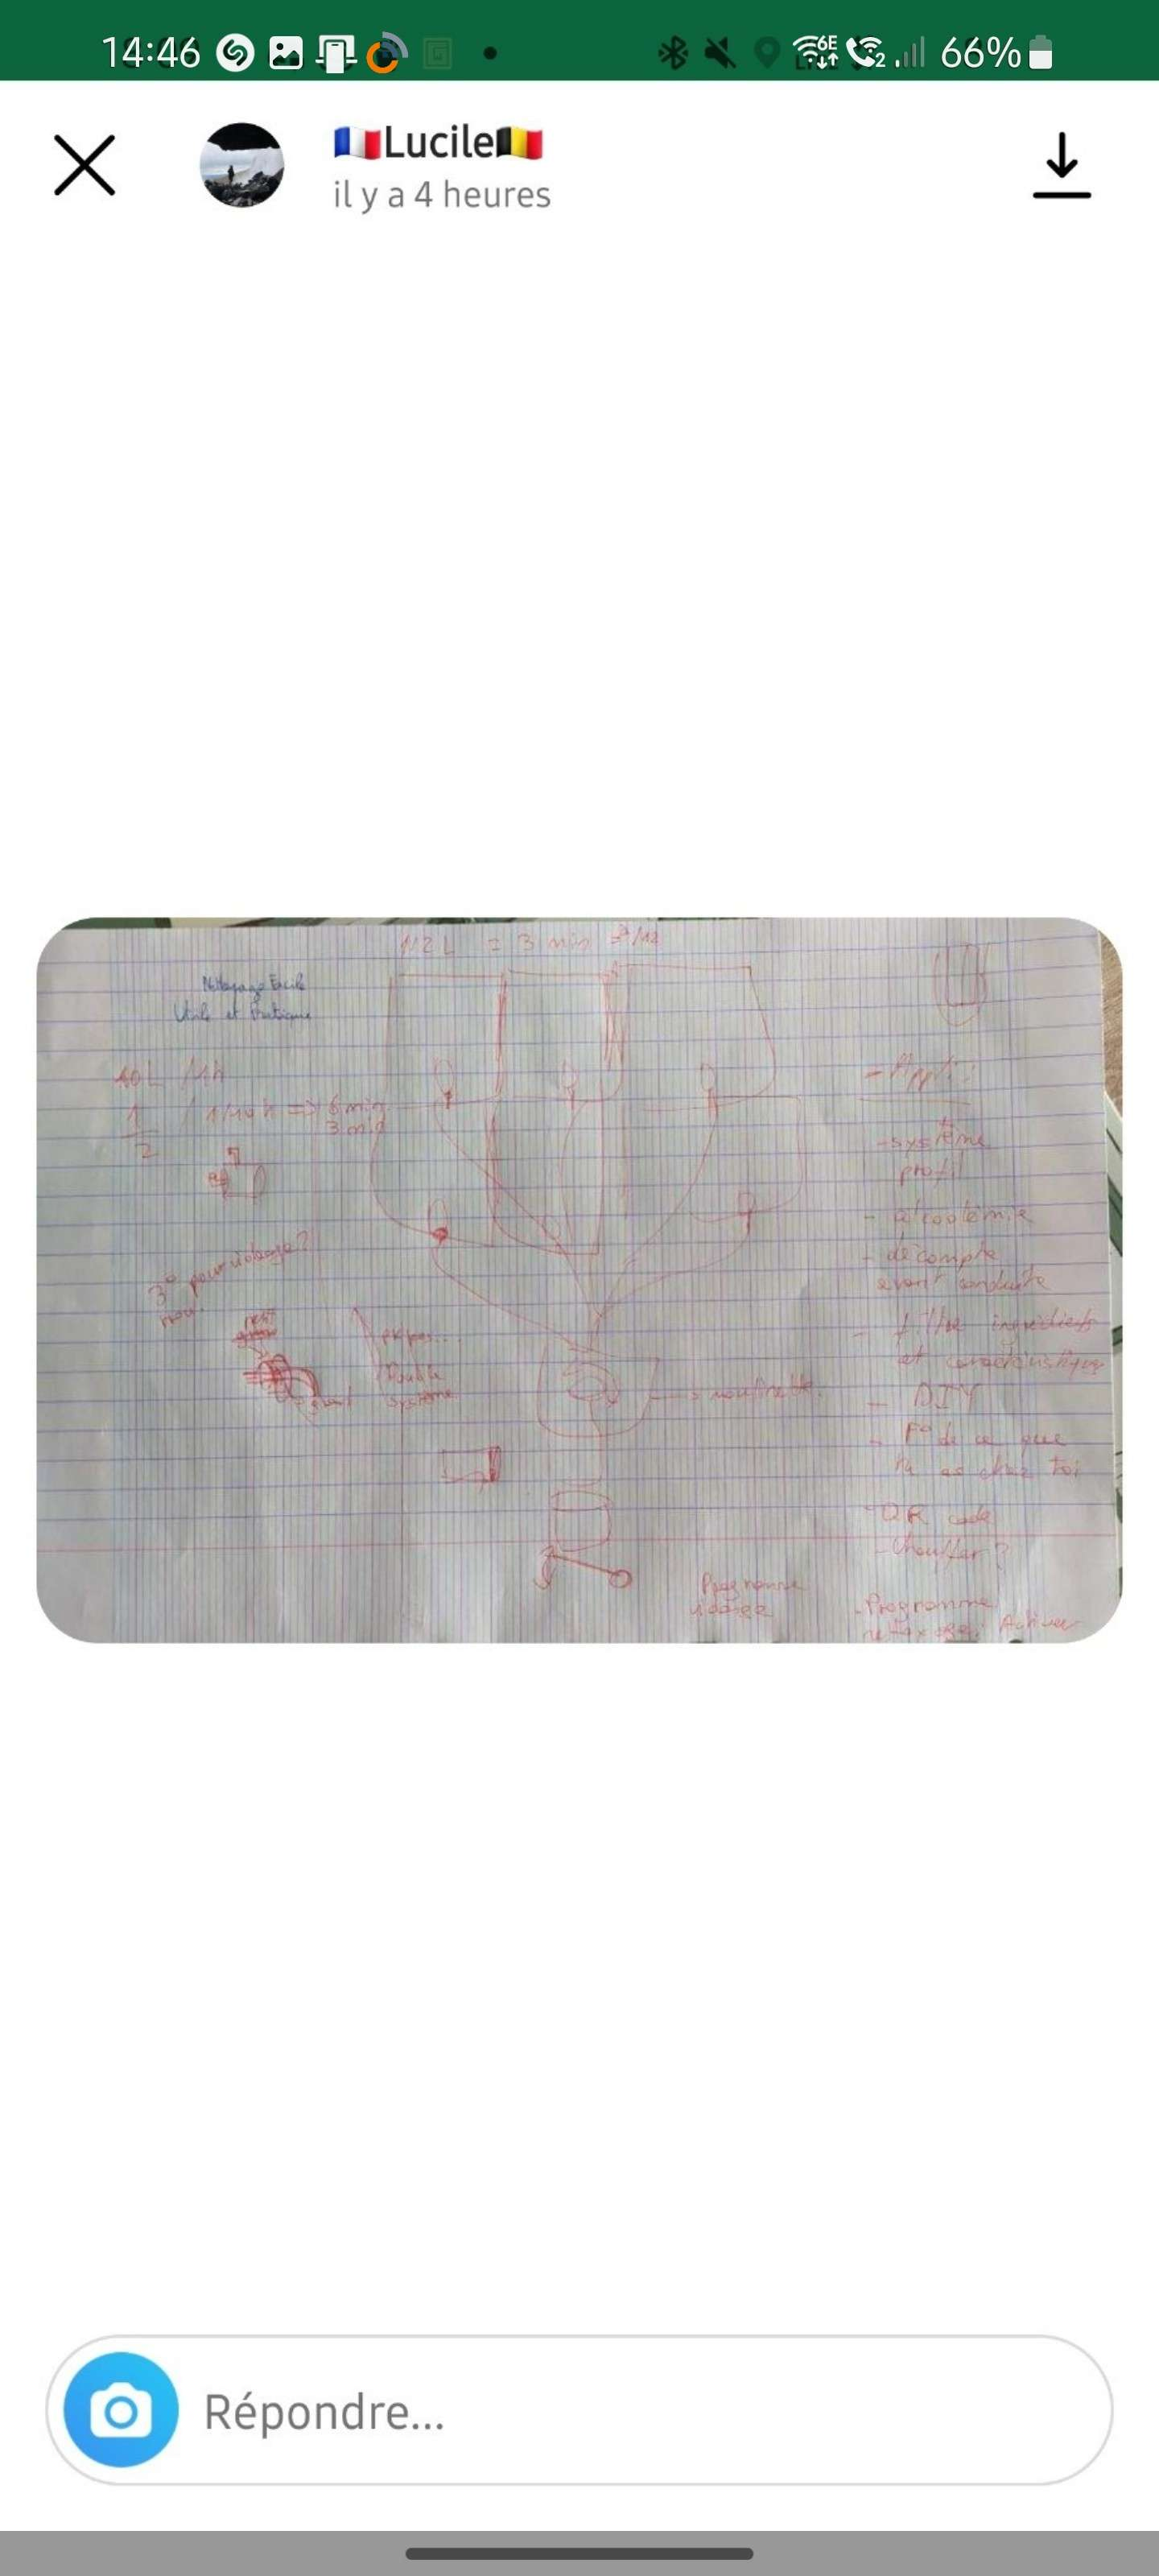 14:46
66%
Lucile
il y a 4 heures
1/2 L = 3 min
Nettoyage Facile
Utile et Pratique
10L /1h
1/2 / 1/10 h => 6 min
3 min
3° pour vidange?
- Appli:
- système
profil
- alcoolémie
- décompte
avant conduite
- filtre ingrédients
et caractéristiques
- DIY
- F° de ce que
tu as chez toi
- QR code
- Chauffer ?
Double
système
Programme
vidange
- Programme
Répondre...